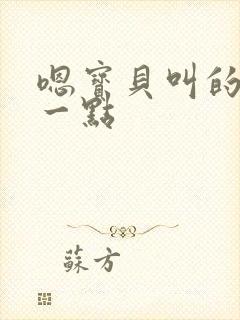 嗯寶貝叫的
一點
蘇方